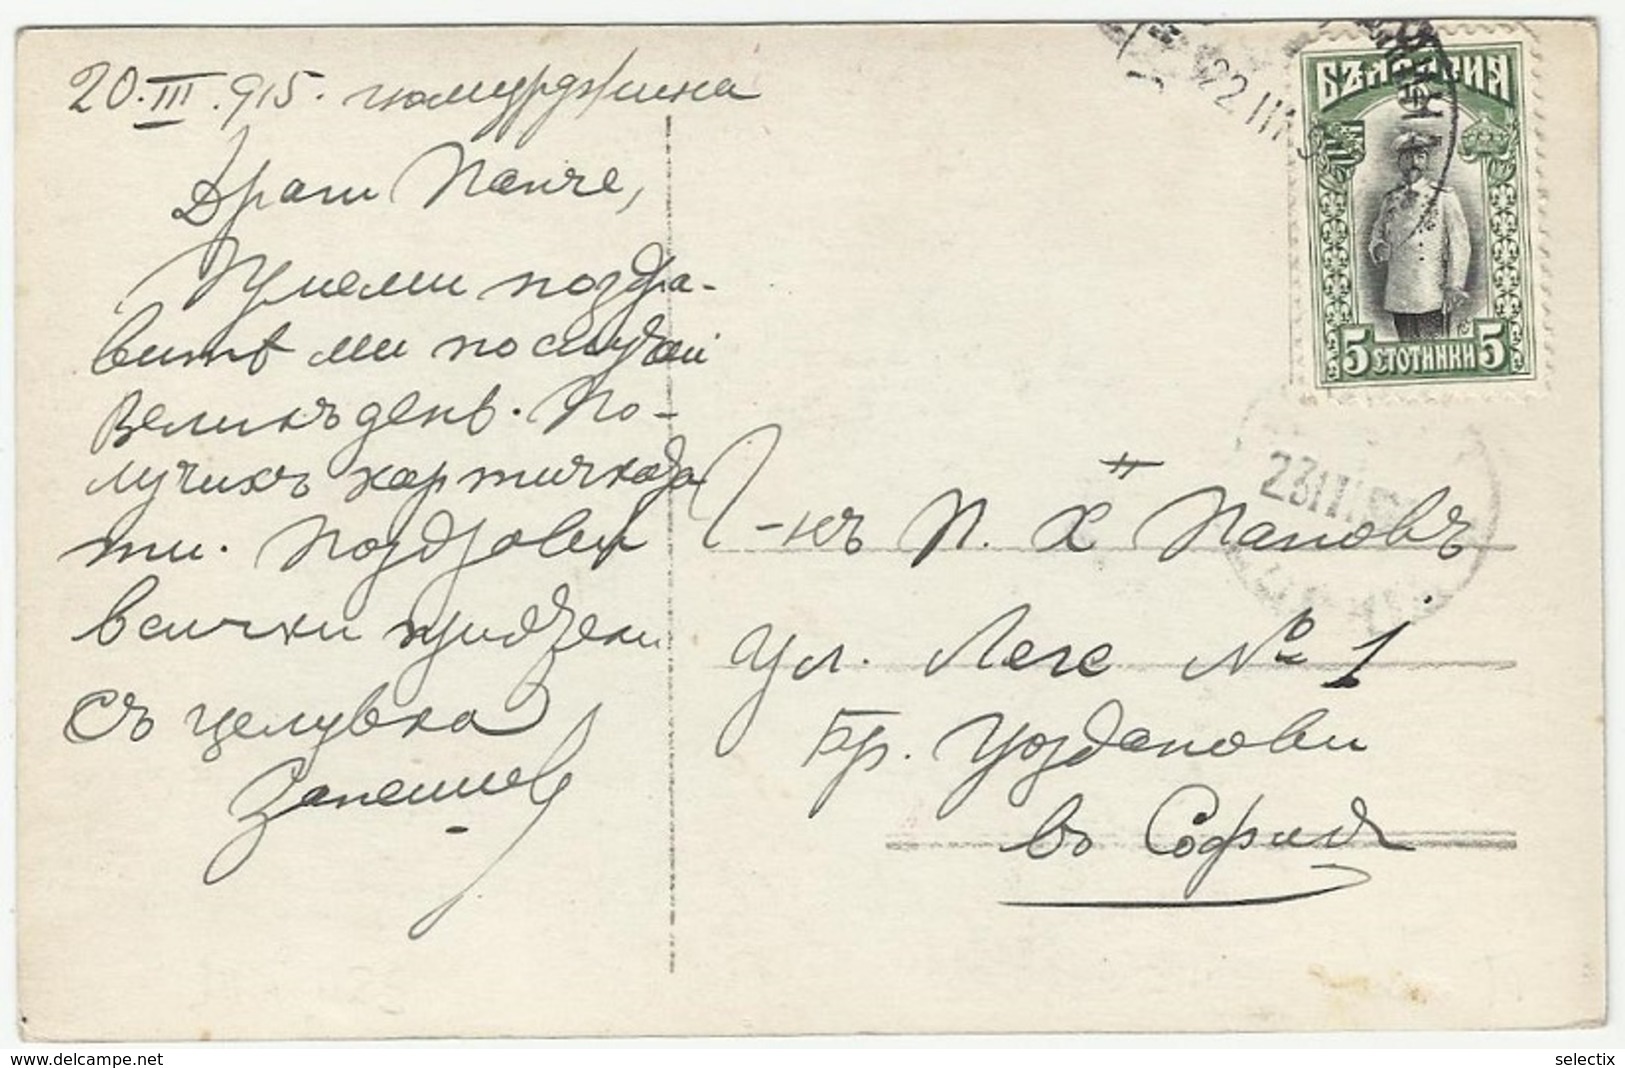 20.III.915. гюмурджина
Драги Панче,
Приеми поздра-
витѣ ми по случай
Великъ день. По-
лучихъ картичката
ти. Поздрави
всички
съ целувка
Г-нъ П. Х" Пановъ
ул. Леге № 1
Бр.
въ София
БЪЛГАРИЯ
5 СТОТИНКИ 5
22 III
23 III
www.delcampe.net
selectix